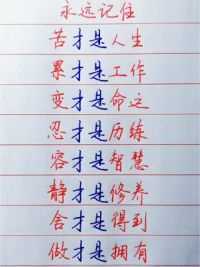 永远记住
苦才是人生
累才是工作
变才是命运
忍才是历练
容才是智慧
静才是修养
舍才是得到
做才是拥有